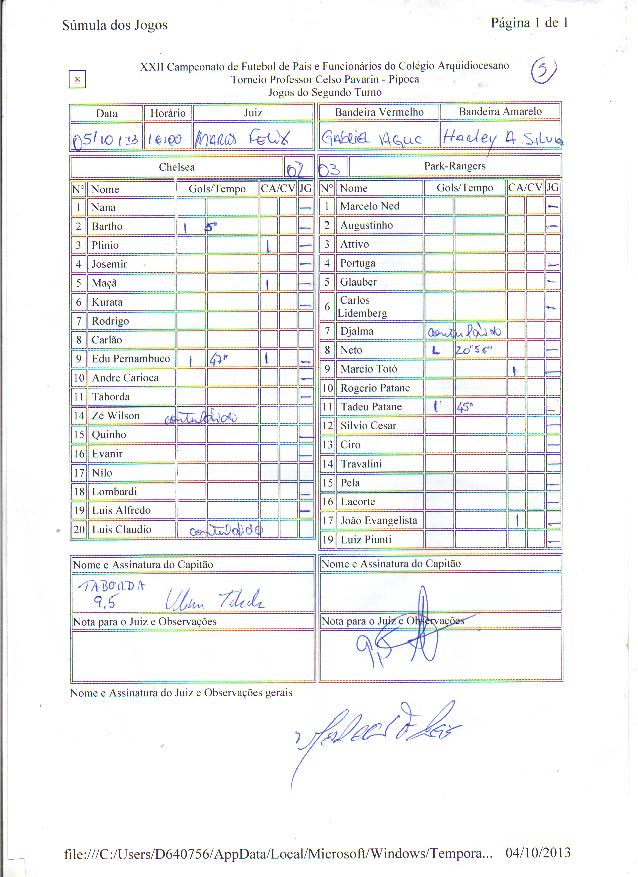 Súmula dos Jogos
Página 1 de 1
XXII Campeonato de Futebol de Pais e Funcionários do Colégio Arquidiocesano
Torneio Professor Celso Pavarin - Pipoca
Jogos do Segundo Turno
x
5
Data Horário Juiz Bandeira Vermelho Bandeira Amarelo
05/10/13 16:00 MARIO FELIX GABRIEL Harley A. Silva
Chelsea 02 03 Park-Rangers
Nº Nome Gols/Tempo CA/CV JG
1 Nana —
2 Bartho 1 5" —
3 Plinio 1 —
4 Josemir —
5 Maçã 1 —
6 Kurata —
7 Rodrigo
8 Carlão
9 Edu Pernambuco 1 47" 1 —
10 Andre Carioca —
11 Taborda —
14 Zé Wilson contundido
15 Quinho —
16 Evanir —
17 Nilo
18 Lombardi —
19 Luis Alfredo —
20 Luis Claudio contundido
Nº Nome Gols/Tempo CA/CV JG
1 Marcelo Ned —
2 Augustinho —
3 Attivo —
4 Portuga —
5 Glauber —
6 Carlos
Lidemberg —
7 Djalma contundido
8 Neto 1 20"50" —
9 Marcio Totó 1 —
10 Rogerio Patane
11 Tadeu Patane 1 45" —
12 Silvio Cesar —
13 Ciro —
14 Travalini —
15 Pela —
16 Lacorte —
17 João Evangelista 1 —
19 Luiz Piunti —
Nome e Assinatura do Capitão
TABORDA
9,5
Nota para o Juiz e Observações
Nome e Assinatura do Capitão
Nota para o Juiz e Observações
9,5
Nome e Assinatura do Juiz e Observações gerais
file:///C:/Users/D640756/AppData/Local/Microsoft/Windows/Tempora... 04/10/2013